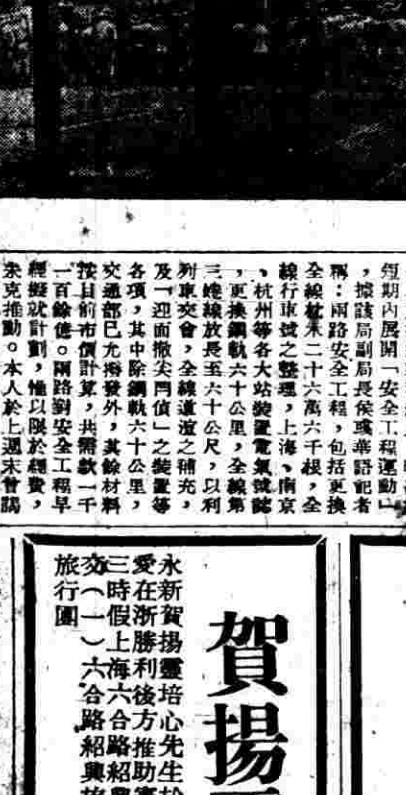 短期內展開「安全工程運動」
，據該局副局長侯或華語記者
稱：兩路安全工程，包括更換
全線枕木二十六萬六千根，全
線行車號之整理，上海、南京
、杭州等各大站裝置電氣號誌
，更換鋼軌六十公里，全線第
三堍線放長至六十公尺，以利
列車交會，全線道渣之補充，
及「迎面撤尖閂偵」之裝置等
各項，其中除鋼軌六十公里，
交通部已允撥發外，其餘材料
按目前市價計算，共需款一千
一百餘億。兩路對安全工程早
經擬就計劃，惟以限於經費，
未克推動。本人於上週末曾謁
賀揚
永新賀揚靈培心先生於
愛在浙勝利後方推助
三時假上海六合路紹興
交（一）六合路紹興旅
旅行團